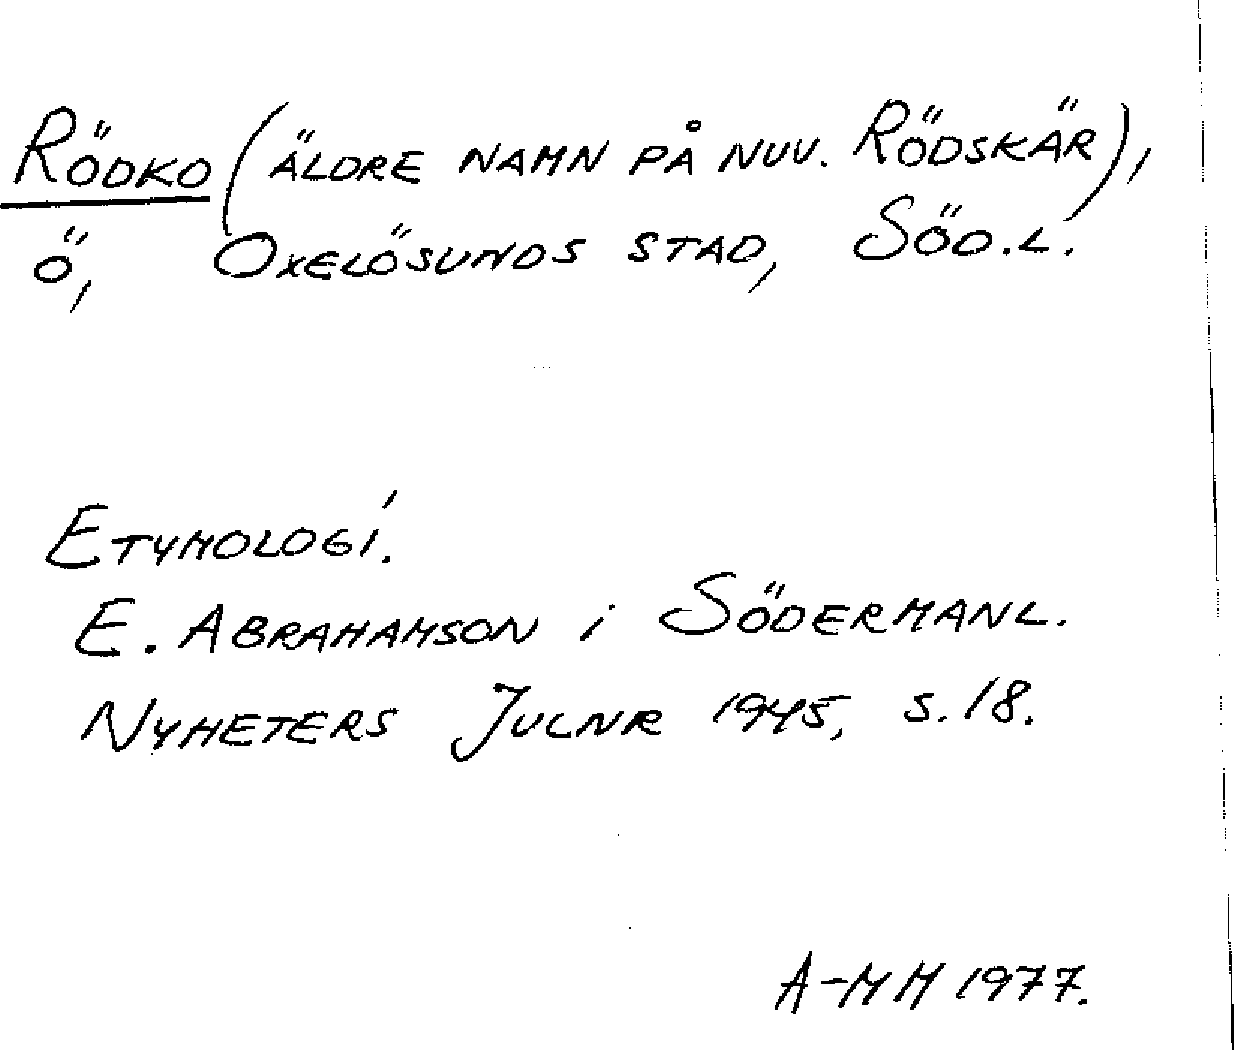 RÖDKO (ÄLDRE NAMN PÅ NUV. RÖDSKÄR),
Ö, OXELÖSUNDS STAD, SÖD.L.
ETYMOLOGI.
E. ABRAHAMSON i SÖDERMANL.
NYHETERS JULNR 1945, S. 18.
A-MM 1977.